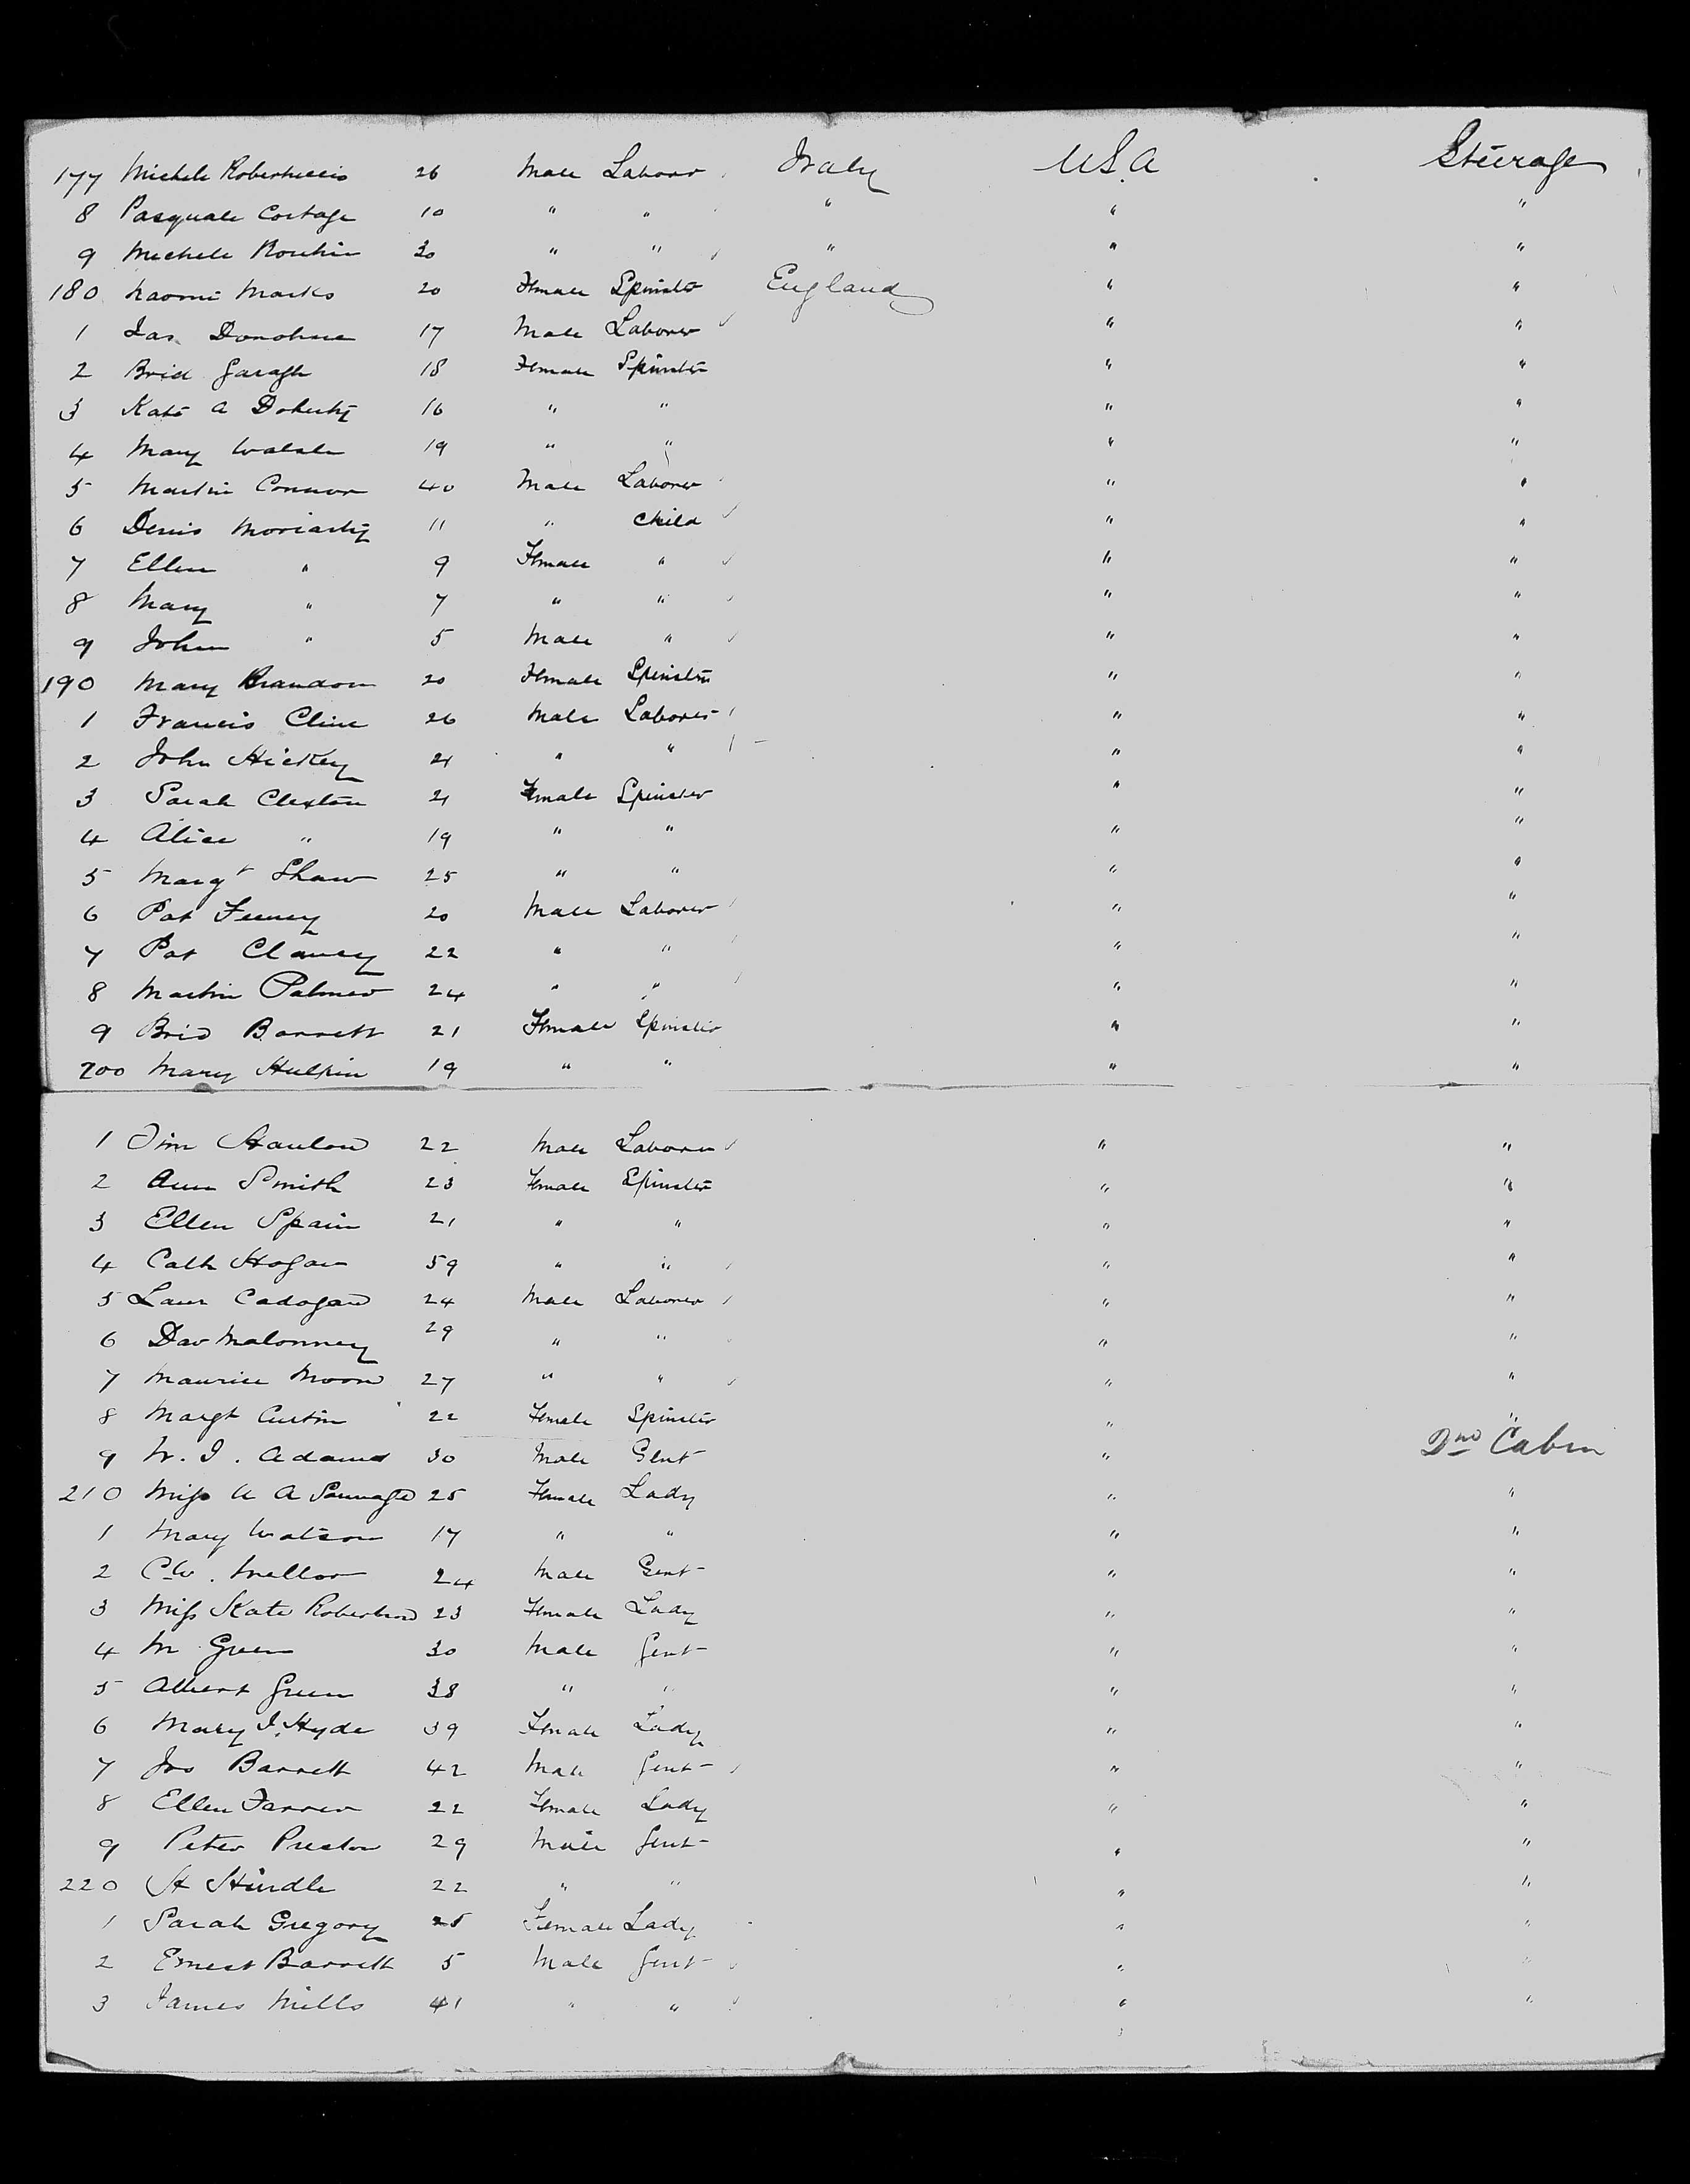 177 Michele 26 Male Laborer Italy U.S.A Steerage
8 Pasquale Cortage 10 " " " " "
9 Michele 30 " " " " "
180 Naomi Marks 20 Female Spinster England " "
1 Jas. Donohue 17 Male Laborer " "
2 Brid Garagh 18 Female Spinster " "
3 Kate A Doherty 16 " " " "
4 Mary Walsh 19 " " " "
5 Martin Connor 40 Male Laborer " "
6 Denis Moriarty 11 " Child " "
7 Ellen " 9 Female " " "
8 Mary " 7 " " " "
9 John " 5 Male " " "
190 Mary Brandon 20 Female Spinster " "
1 Francis Cline 26 Male Laborer " "
2 John Hickey 21 " " " "
3 Sarah Clexton 21 Female Spinster " "
4 Alice " 19 " " " "
5 Margt Shaw 25 " " " "
6 Pat Feeney 20 Male Laborer " "
7 Pat Clancy 22 " " " "
8 Martin Palmer 24 " " " "
9 Brid Barrett 21 Female Spinster " "
200 Mary Hulpin 19 " " " "
1 Tim Hanlon 22 Male Laborer " "
2 Ann Smith 23 Female Spinster " "
3 Ellen Spain 21 " " " "
4 Cath Hogan 59 " " " "
5 Laur Cadogan 24 Male Laborer " "
6 Dav Malonney 29 " " " "
7 Maurice Moore 27 " " " "
8 Margt Curtin 22 Female Spinster " "
9 W. J. Adams 30 Male Gent " 2nd Cabin
210 Miss A 25 Female Lady " "
1 Mary Watson 17 " " " "
2 C W. Mellor 24 Male Gent " "
3 Miss Kate Robertson 23 Female Lady " "
4 M Green 30 Male Gent " "
5 Albert Green 38 " " " "
6 Mary J. Hyde 39 Female Lady " "
7 Jno Barrett 42 Male Gent " "
8 Ellen Farrer 22 Female Lady " "
9 Peter Preston 29 Male Gent " "
220 H Hindle 22 " " " "
1 Sarah Gregory 25 Female Lady " "
2 Ernest Barrett 5 Male Gent " "
3 James Mills 41 " " " "